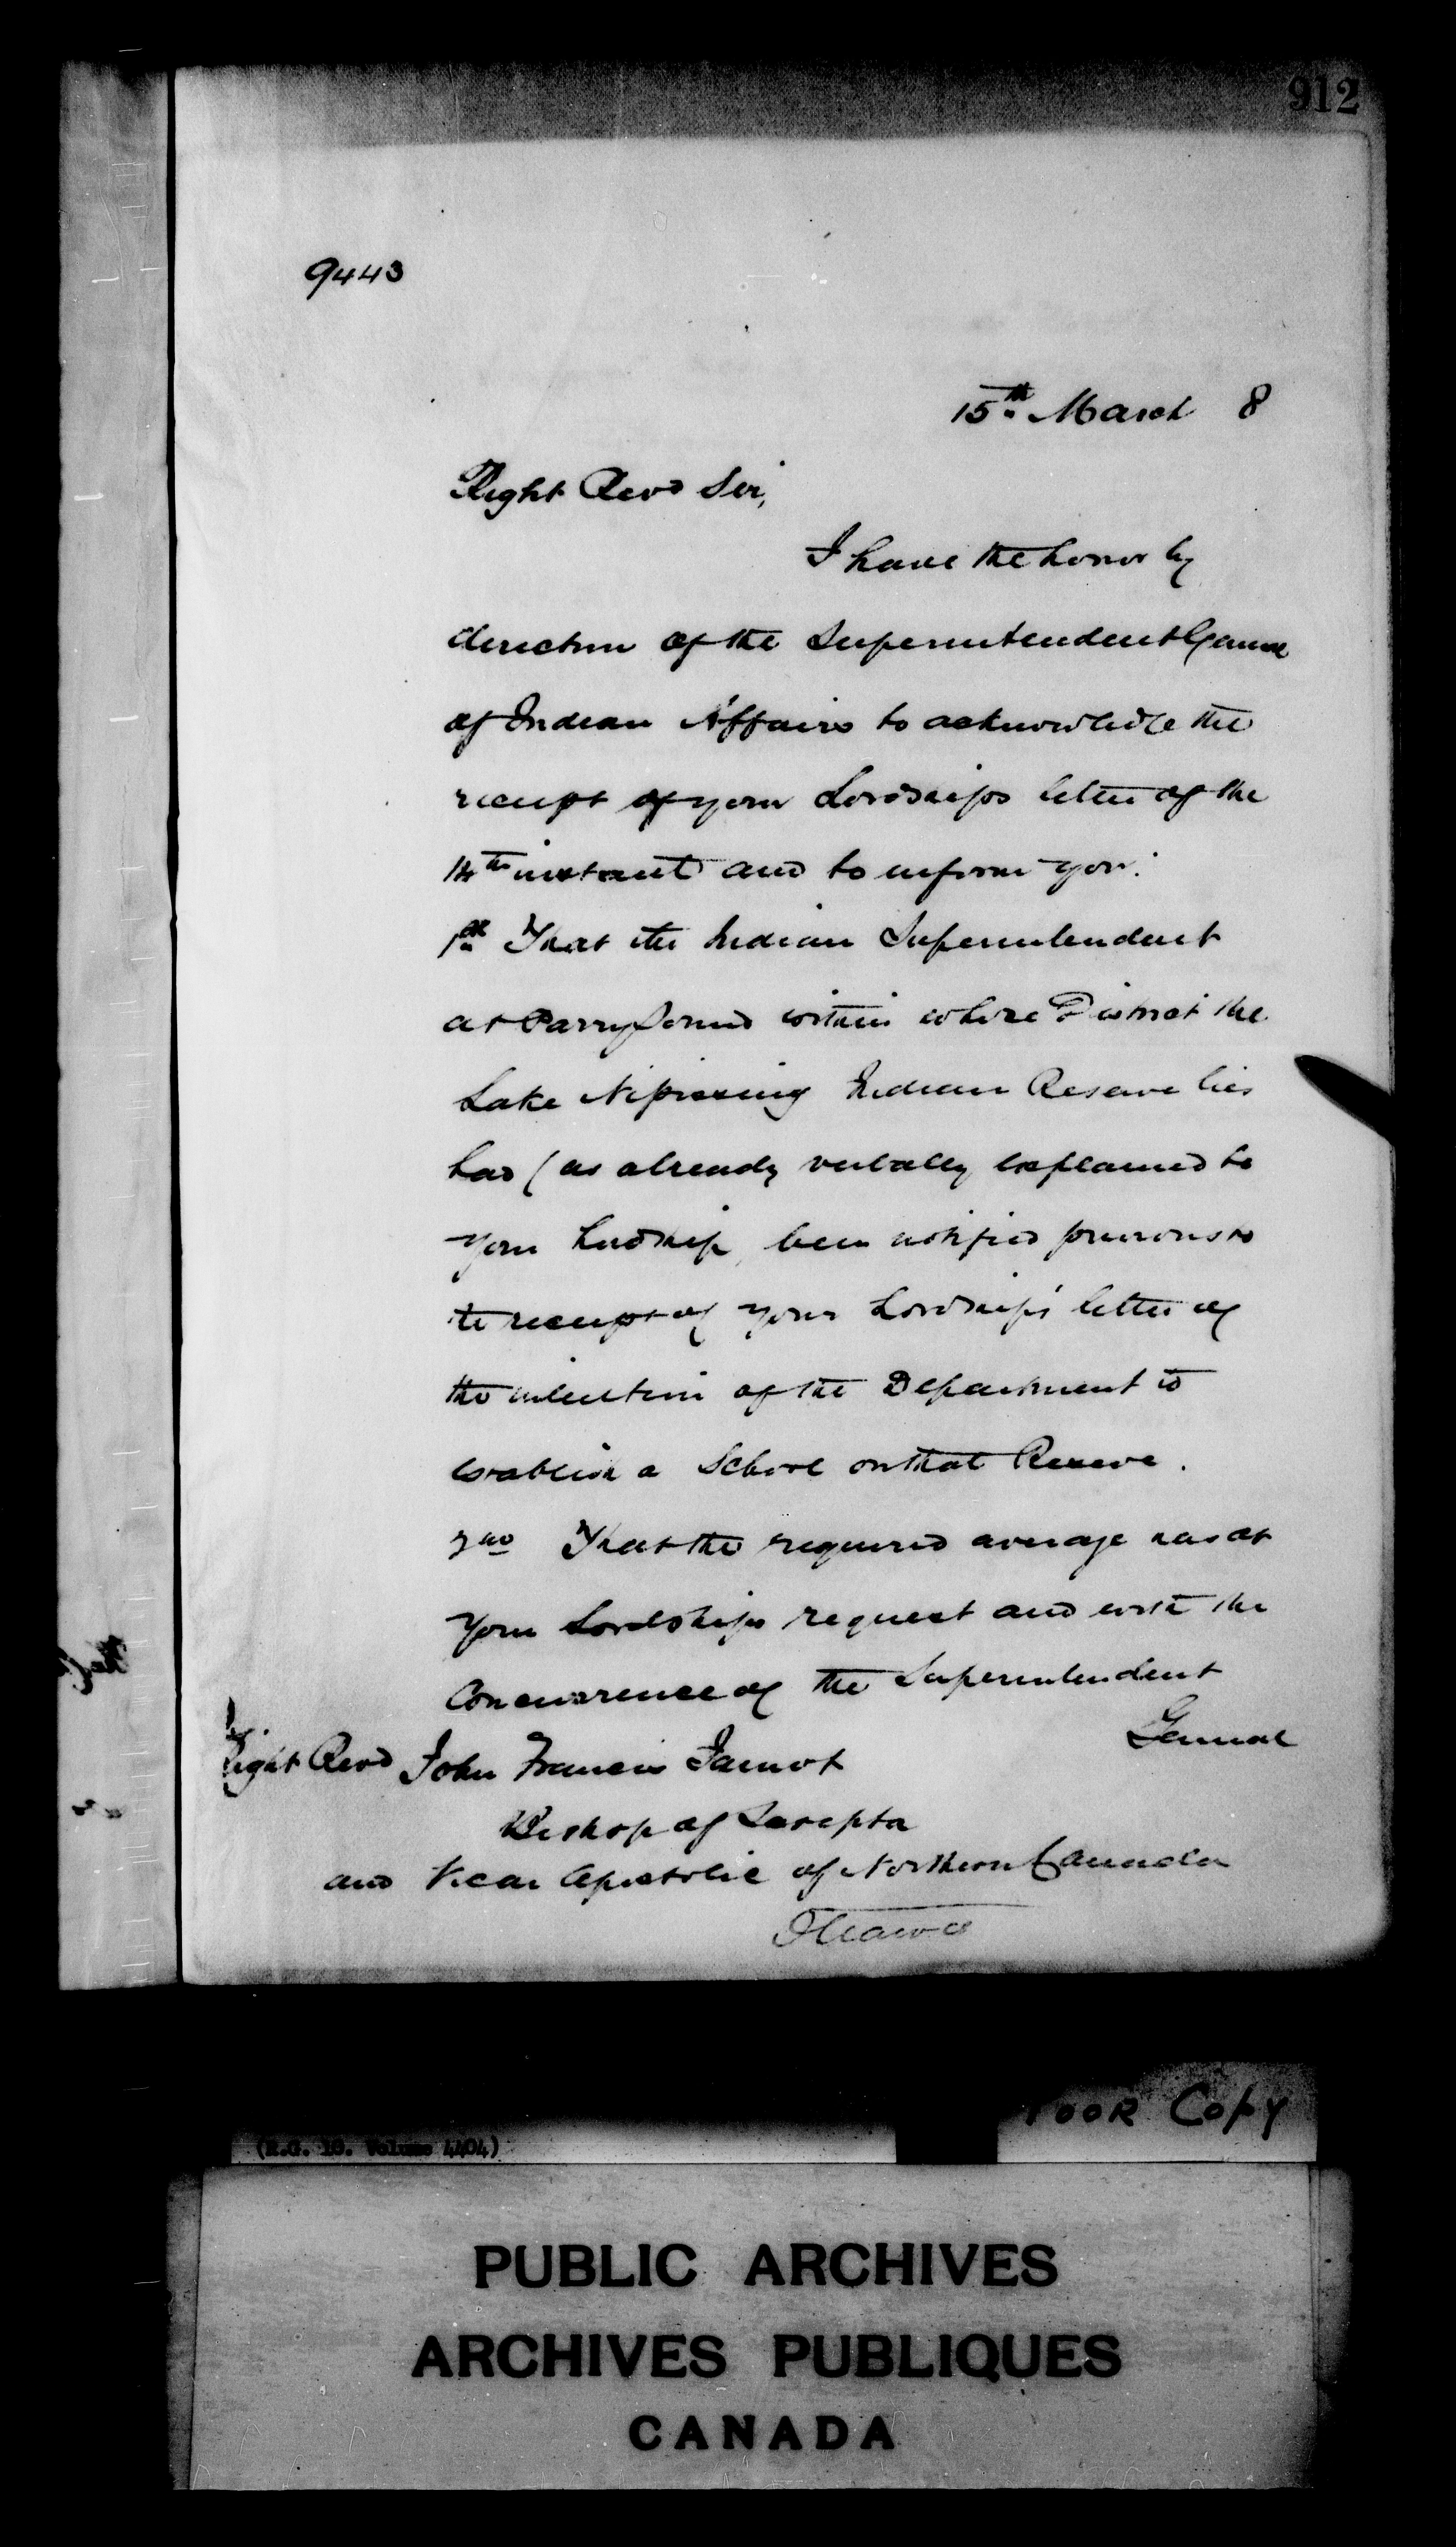 912
9443
15th. March 8
Right Revd Sir,
I have the honor by
direction of the Superintendent General
of Indian Affairs to acknowledge the
receipt of your Lordships letter of the
14th instant and to inform you:
1st That the Indian Superintendent
at Parry Sound within whose District the
Lake Nipissing Indian Reserve lies
had (as already verbally explained to
your Lordship, been notified previous to
the receipt of your Lordship's letter of
the intention of the Department to
establish a School on that Reserve.
2nd That the required average was at
your Lordships request and with the
Concurrence of the Superintendent
General
Right Revd John Francis Jamot
Bishop of Sarepta
and Vicar Apostolic of Northern Canada
Ottawa
POOR COPY
(R.G. 10. Volume 4404)
PUBLIC ARCHIVES
ARCHIVES PUBLIQUES
CANADA